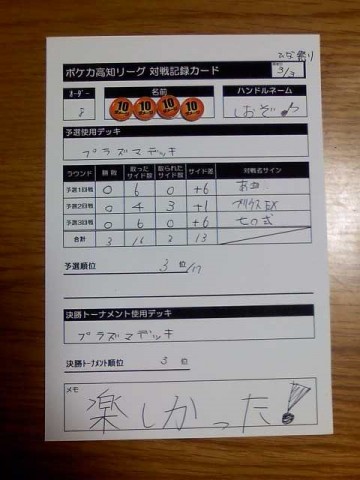 ひな祭り
ポケカ高知リーグ 対戦記録カード 3/3
オーダー 名前 ハンドルネーム
8 10 10 10 10 しおぞ♪
予選使用デッキ
プラズマデッキ
ラウンド 勝敗 取ったサイド数 取られたサイド数 サイド差 対戦者サイン
予選1回戦 O 6 0 +6
予選2回戦 O 4 3 +1 プリウスEX
予選3回戦 O 6 0 +6 七〇式
合計 3 16 3 13
予選順位 3 位/17
決勝トーナメント使用デッキ
プラズマデッキ
決勝トーナメント順位 3 位
メモ
楽しかった!